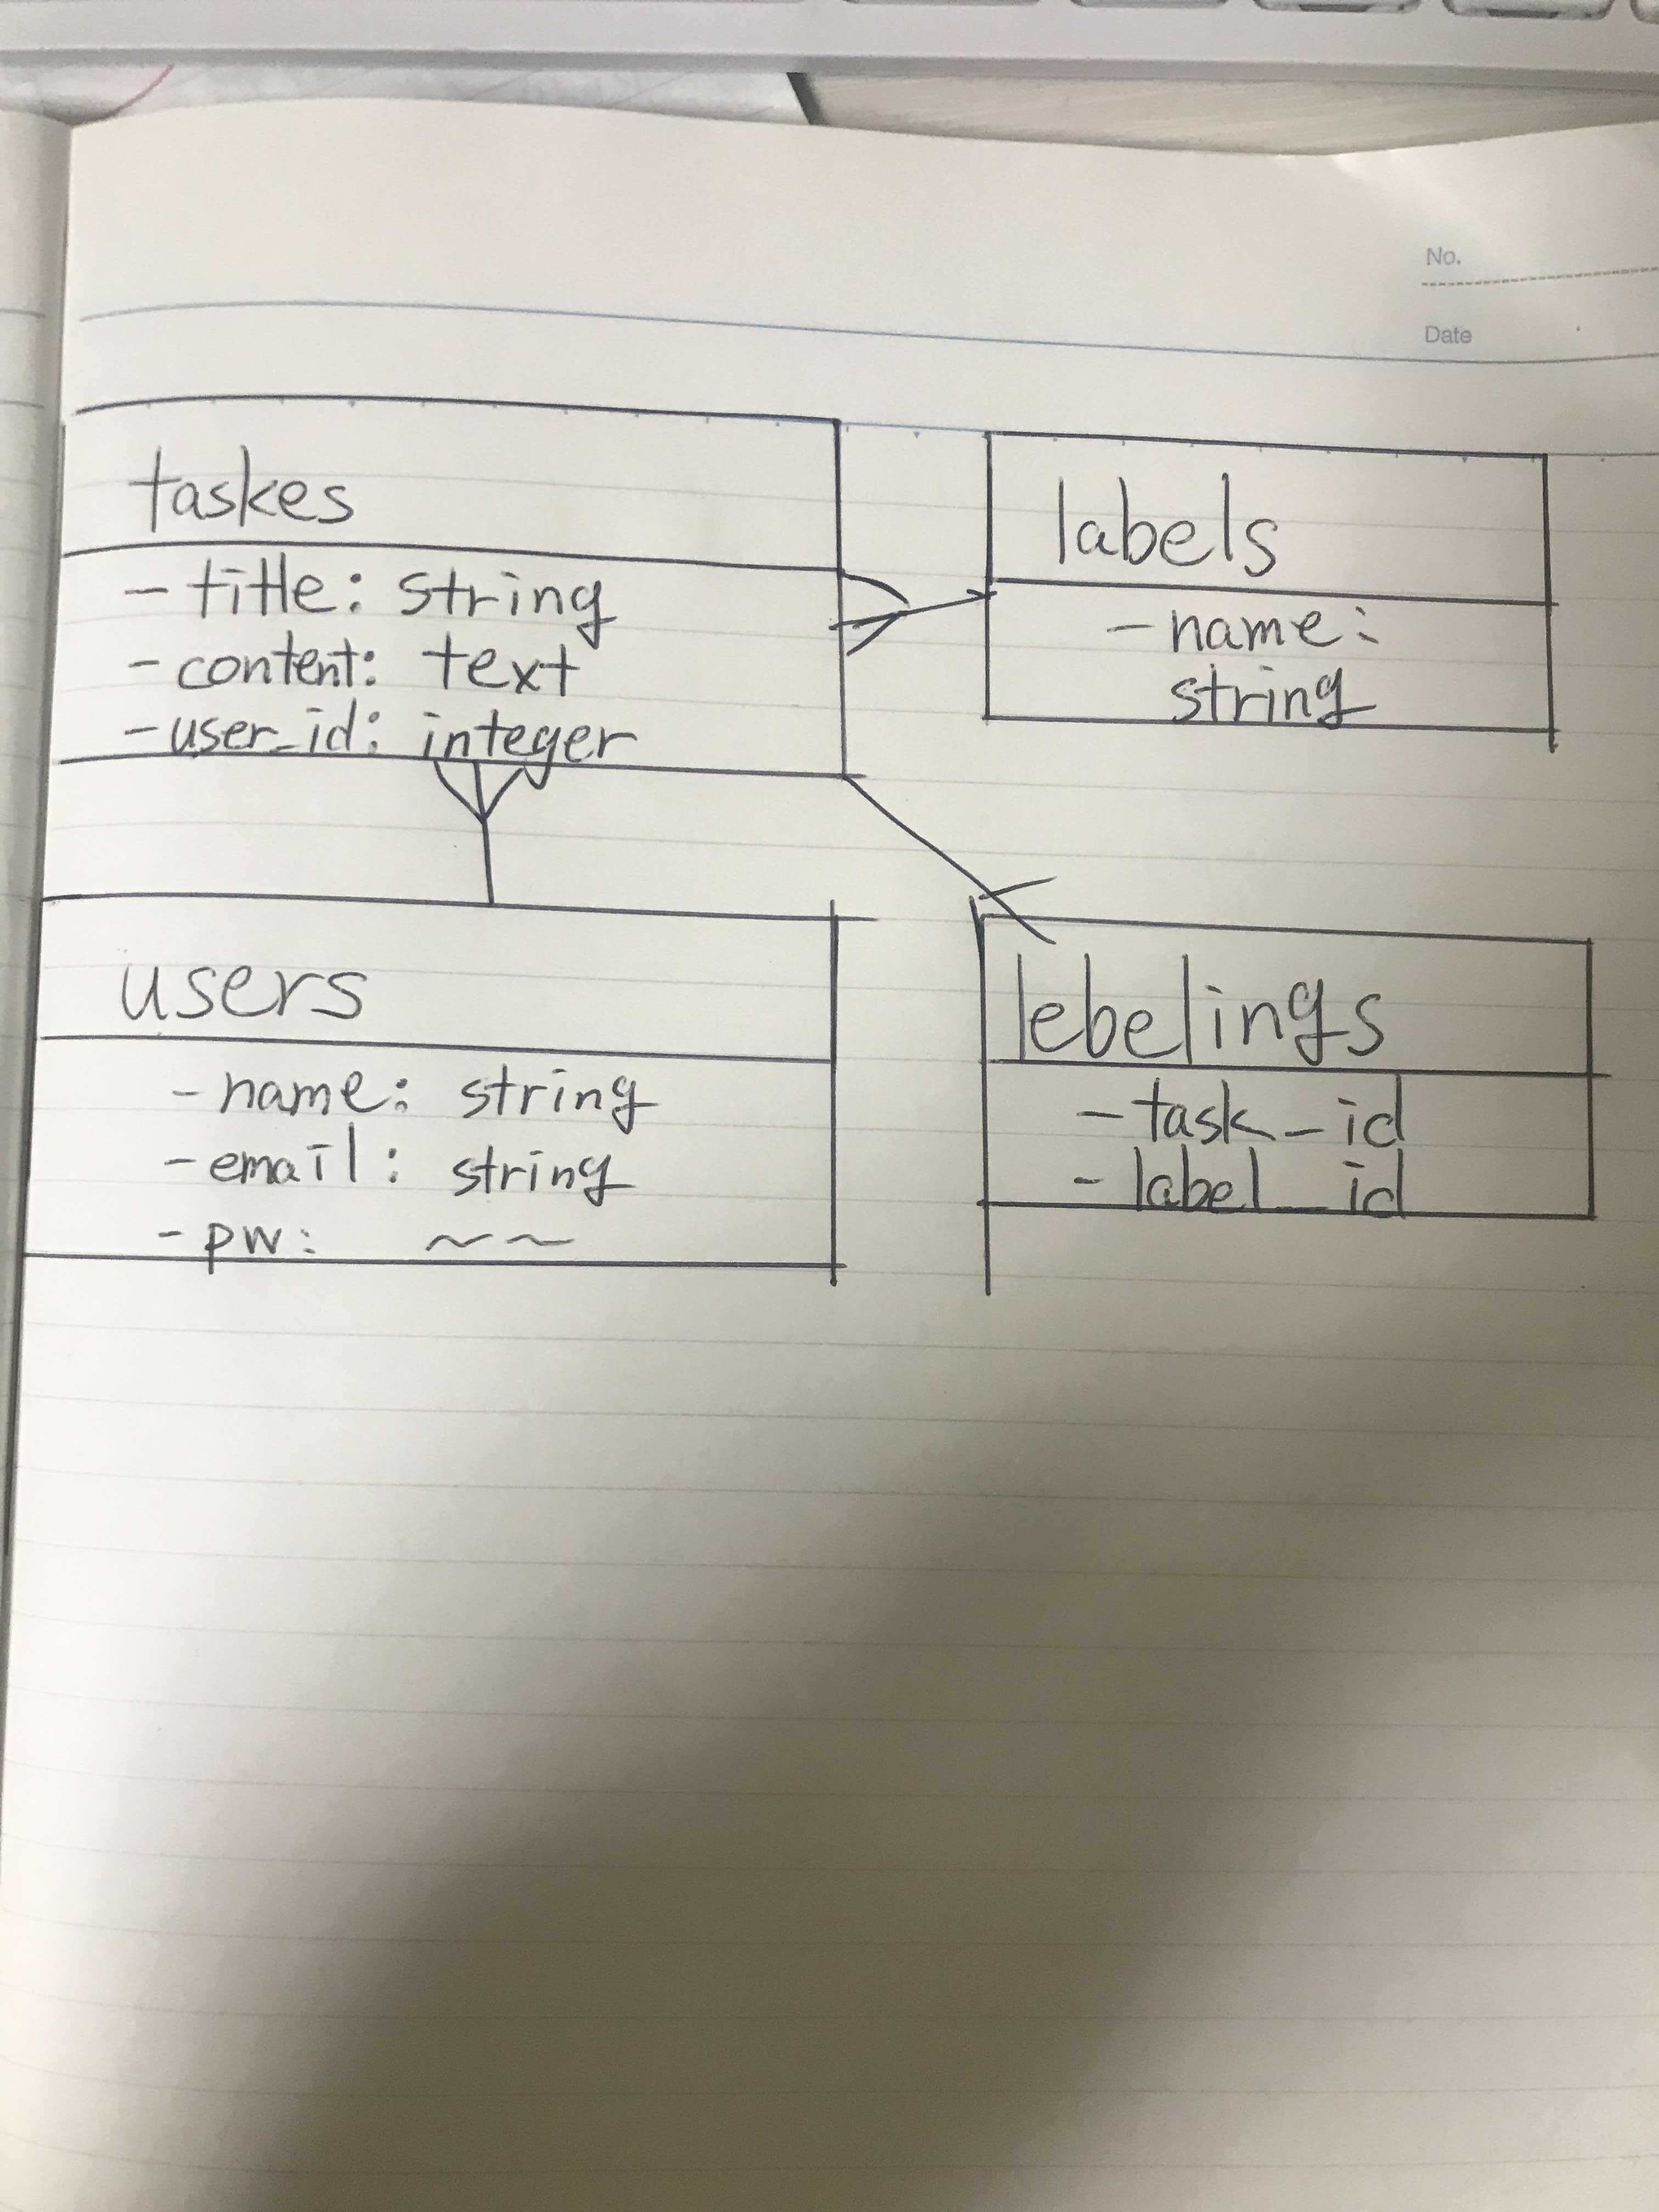 No.
Date
taskes
- title: string
- content: text
- user_id: integer
labels
- name:
string
users
- name: string
- email: string
- pw: ~~
lebelings
- task_id
- label_id